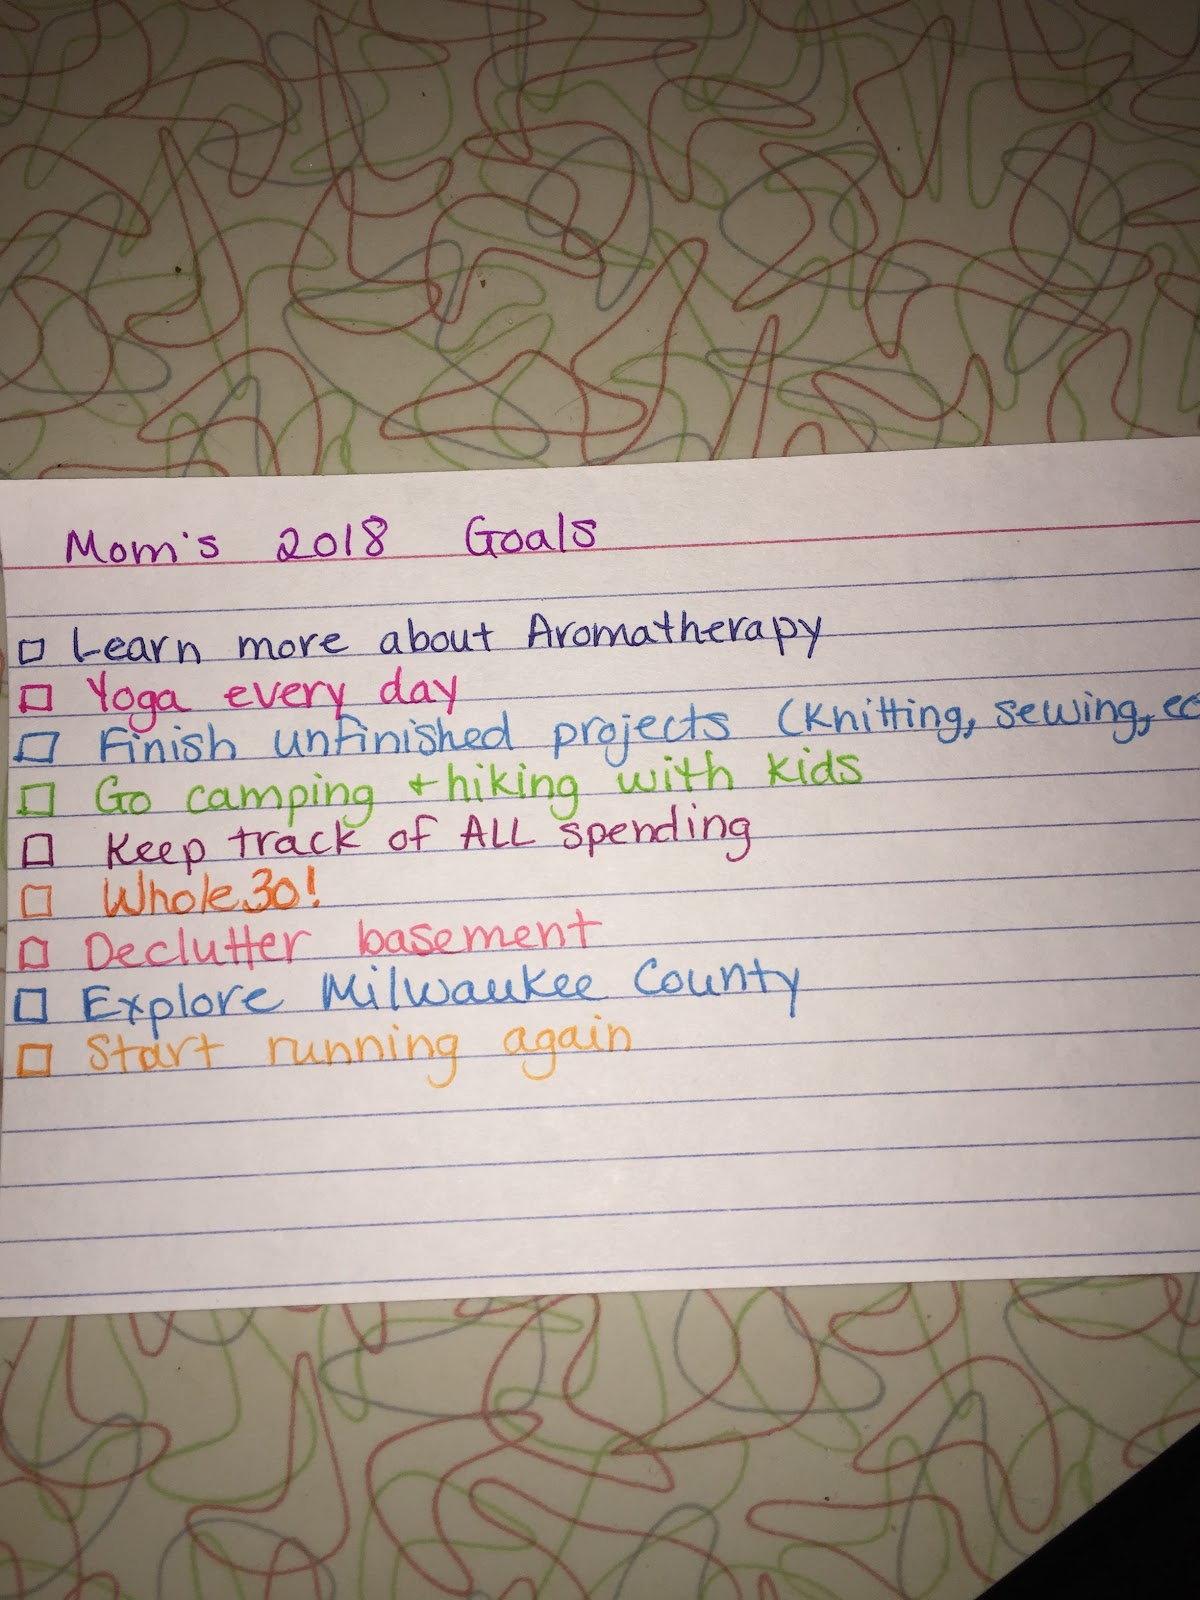 Mom's 2018 Goals
Learn more about Aromatherapy
Yoga every day
Finish unfinished projects (Knitting, sewing,
Go camping + hiking with kids
Keep track of ALL spending
Whole30!
Declutter basement
Explore Milwaukee County
Start running again